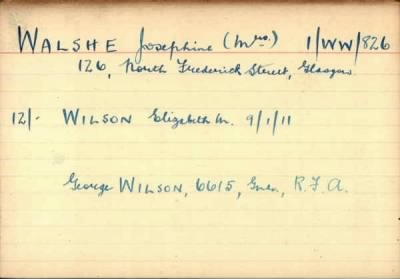 WALSHE Josephine (Mrs.) 1/WW/826
126, North Frederick Street, Glasgow
12/- WILSON Elizabeth M. 9/1/11
George WILSON, 6615, Gnr., R.F.A.